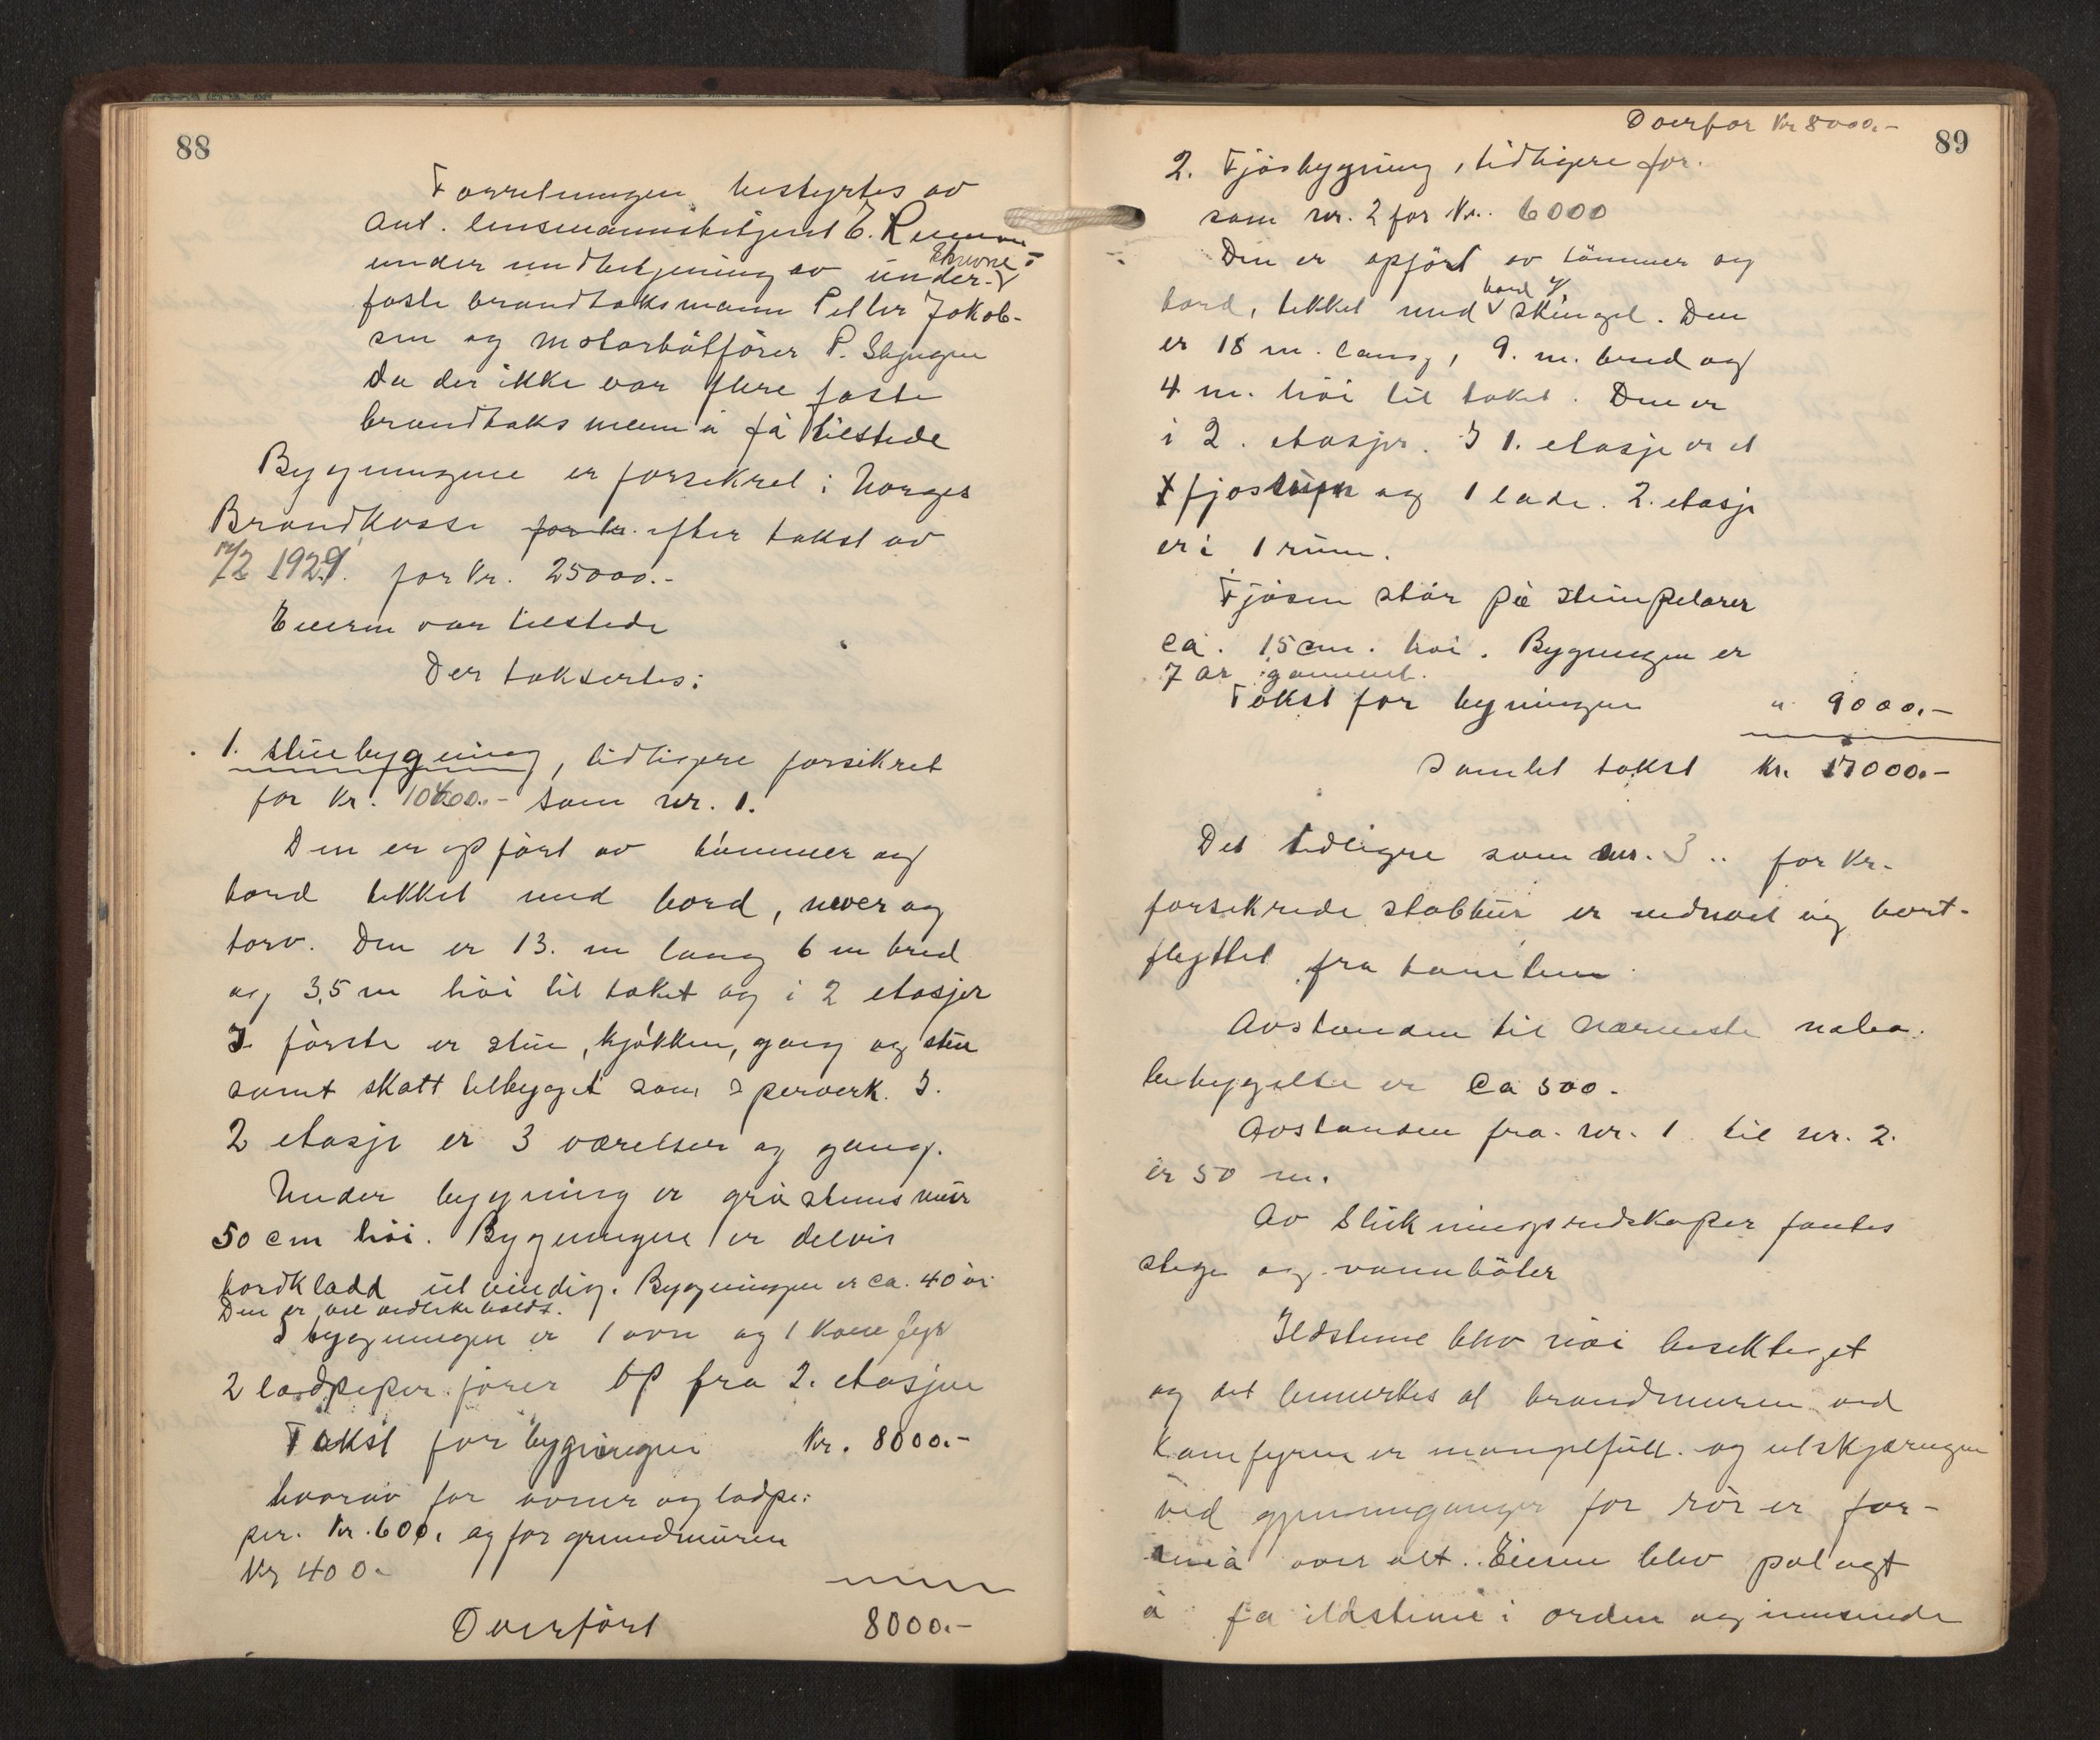 88
Forretningen bestyrtes av
aut. lensmannsbetjent E. 
under undbetjening av under-
faste brandtaksmann Petter Jakob-
sen og motorbåtfører P. 
da der ikke var flere faste
brandtaksmenn å få tilstede
Bygningene er forsikret i Norges
Brandkasse for kr. efter takst av
12/2 1929. for Kr. 25000.-
Eieren var tilstede
Der taksertes:
1. Stuebygning, tidligere forsikret
for Kr. 10400.- som nr. 1.
Den er opført av tømmer og
bord tekket med bord, never og
torv. Den er 13. m lang 6 m bred
og 3,5 m høi til taket og i 2 etasjer
I første er stue, kjøkken, gang og stue
samt skott tilbygget som sperverk. I.
2 etasje er 3 værelser og gang.
Under bygning er gråstensmur
50 cm høi. Bygningen er delvis
bordkladd utvendig. Bygningen er ca. 40 år
Den er vel vedlikeholdt.
I bygningen er 1 ovn og 1 komfyr
2 ladpiper fører op fra 2. etasjen
Takst for bygningen Kr. 8000.-
hvorav for ovner og ladpi-
per. Kr. 600. og for grundmuren
Kr 400.-
Overført 8000.-
Overfør Kr 8000.-
89
2. Fjøsbygning, tidligere for.
som nr. 2 for Kr. 6000
Den er opført av tømmer og
bord 
bord, tekket med skingel. Den
er 18 m. lang, 9. m. bred og
4 m. høi til taket. Den er
i 2. etasjer. I 1. etasje er et
fjøs og 1 lade. 2. etasje
er i 1 rum.
Fjøsen står på stenpelarer
ca. 15 cm. høi. Bygningen er
7 år gammel.
Takst for bygningen " 9000.-
Samlet takst Kr. 17000.-
Det tidligere som nr. 3 .. for Kr.
forsikrede stabbur er nedrevet og bort-
flyttet fra tomten
Avstanden til nærmeste nabo.
bebyggelse er ca 500.
Avstanden fra nr. 1 til nr. 2.
er 50 m.
Av slukningsredskaper fantes
stige og vannbøtter
Ildstene blev nøi besiktiget
og det bemerkes at brandmuren ved
komfyren er mangelfull og utskjæringen
ved gjennemganger for rør er for-
små over alt. Eieren blev pålagt
å få ildstene i orden og innsende